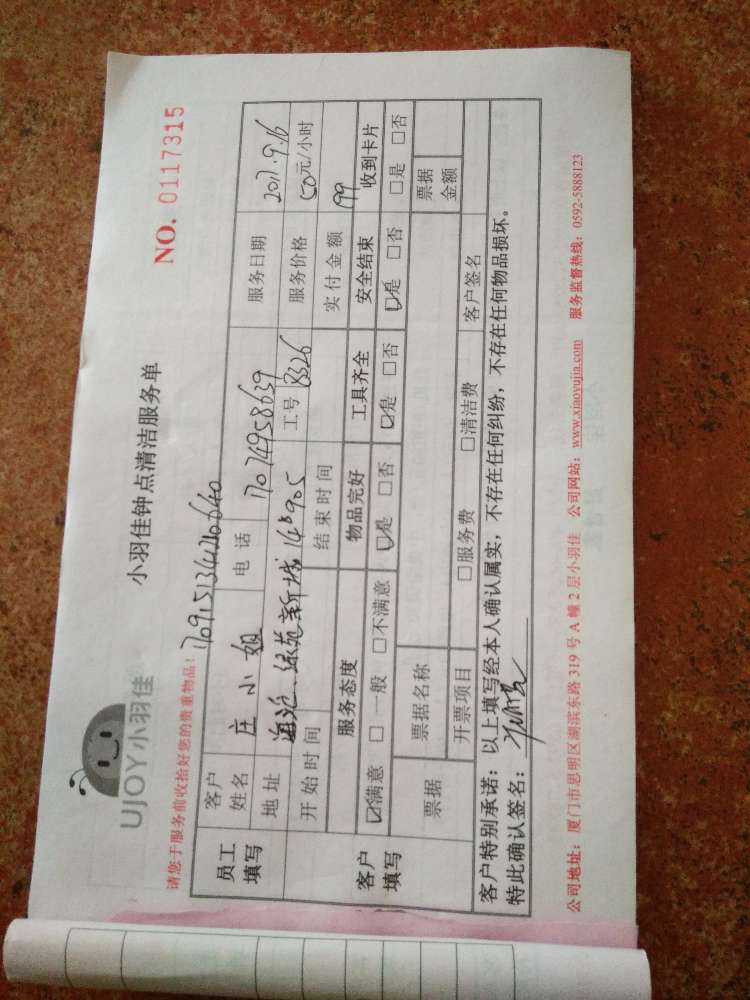 UJOY小羽佳
小羽佳钟点清洁服务单
NO. 0117315
请您于服务前收拾好您的贵重物品!
1709151342126640
员工填写
客户姓名 庄小姐 电话 17074958639 服务日期 2017.9.16
地址 海沧、绿苑新城14#905 工号 8326 服务价格 50元/小时
开始时间 结束时间 实付金额 199
客户填写
服务态度 物品完好 工具齐全 安全结束 收到卡片
☑满意 □一般 □不满意 ☑是 □否 ☑是 □否 ☑是 □否 □是 □否
票据 票据名称 票据金额
开票项目 □服务费 □清洁费 客户签名
客户特别承诺:以上填写经本人确认属实,不存在任何纠纷,不存在任何物品损坏。
特此确认签名:
公司地址:厦门市思明区湖滨东路319号A幢2层小羽佳 公司网站:www.xiaoyujia.com 服务监督热线:0592-5888123